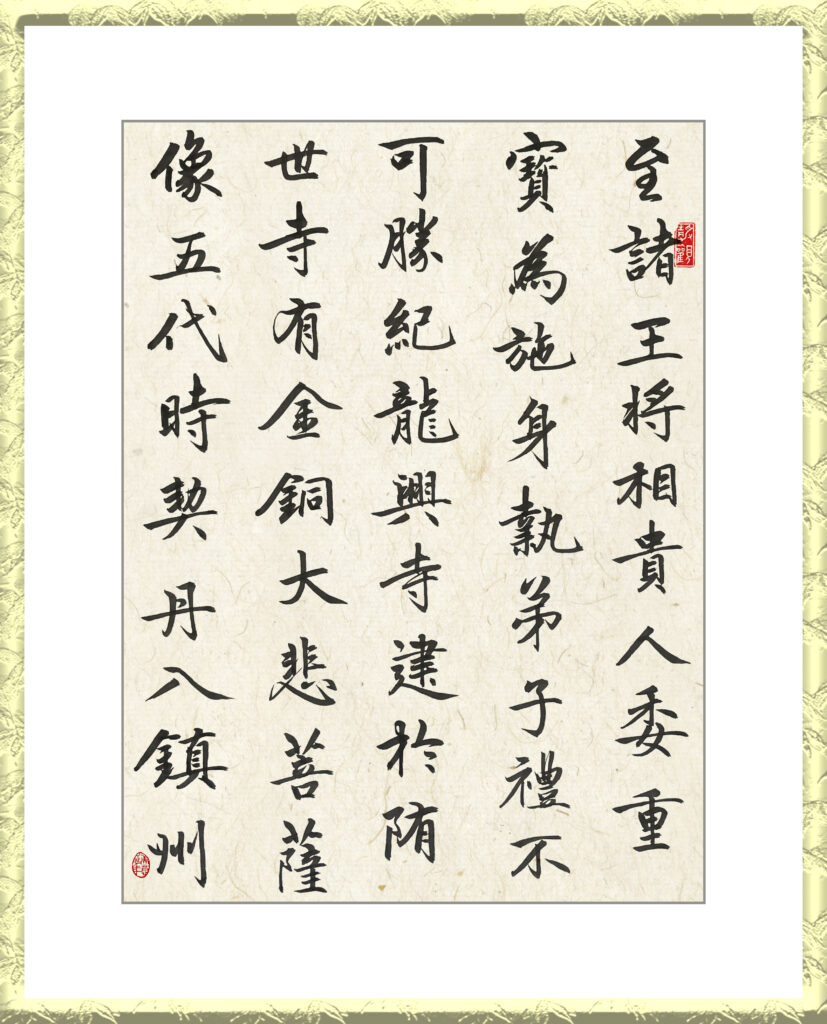 至諸王将相貴人委重
寶為施身執弟子禮不
可勝紀龍興寺建於隋
世寺有金銅大悲菩薩
像五代時契丹入鎮州